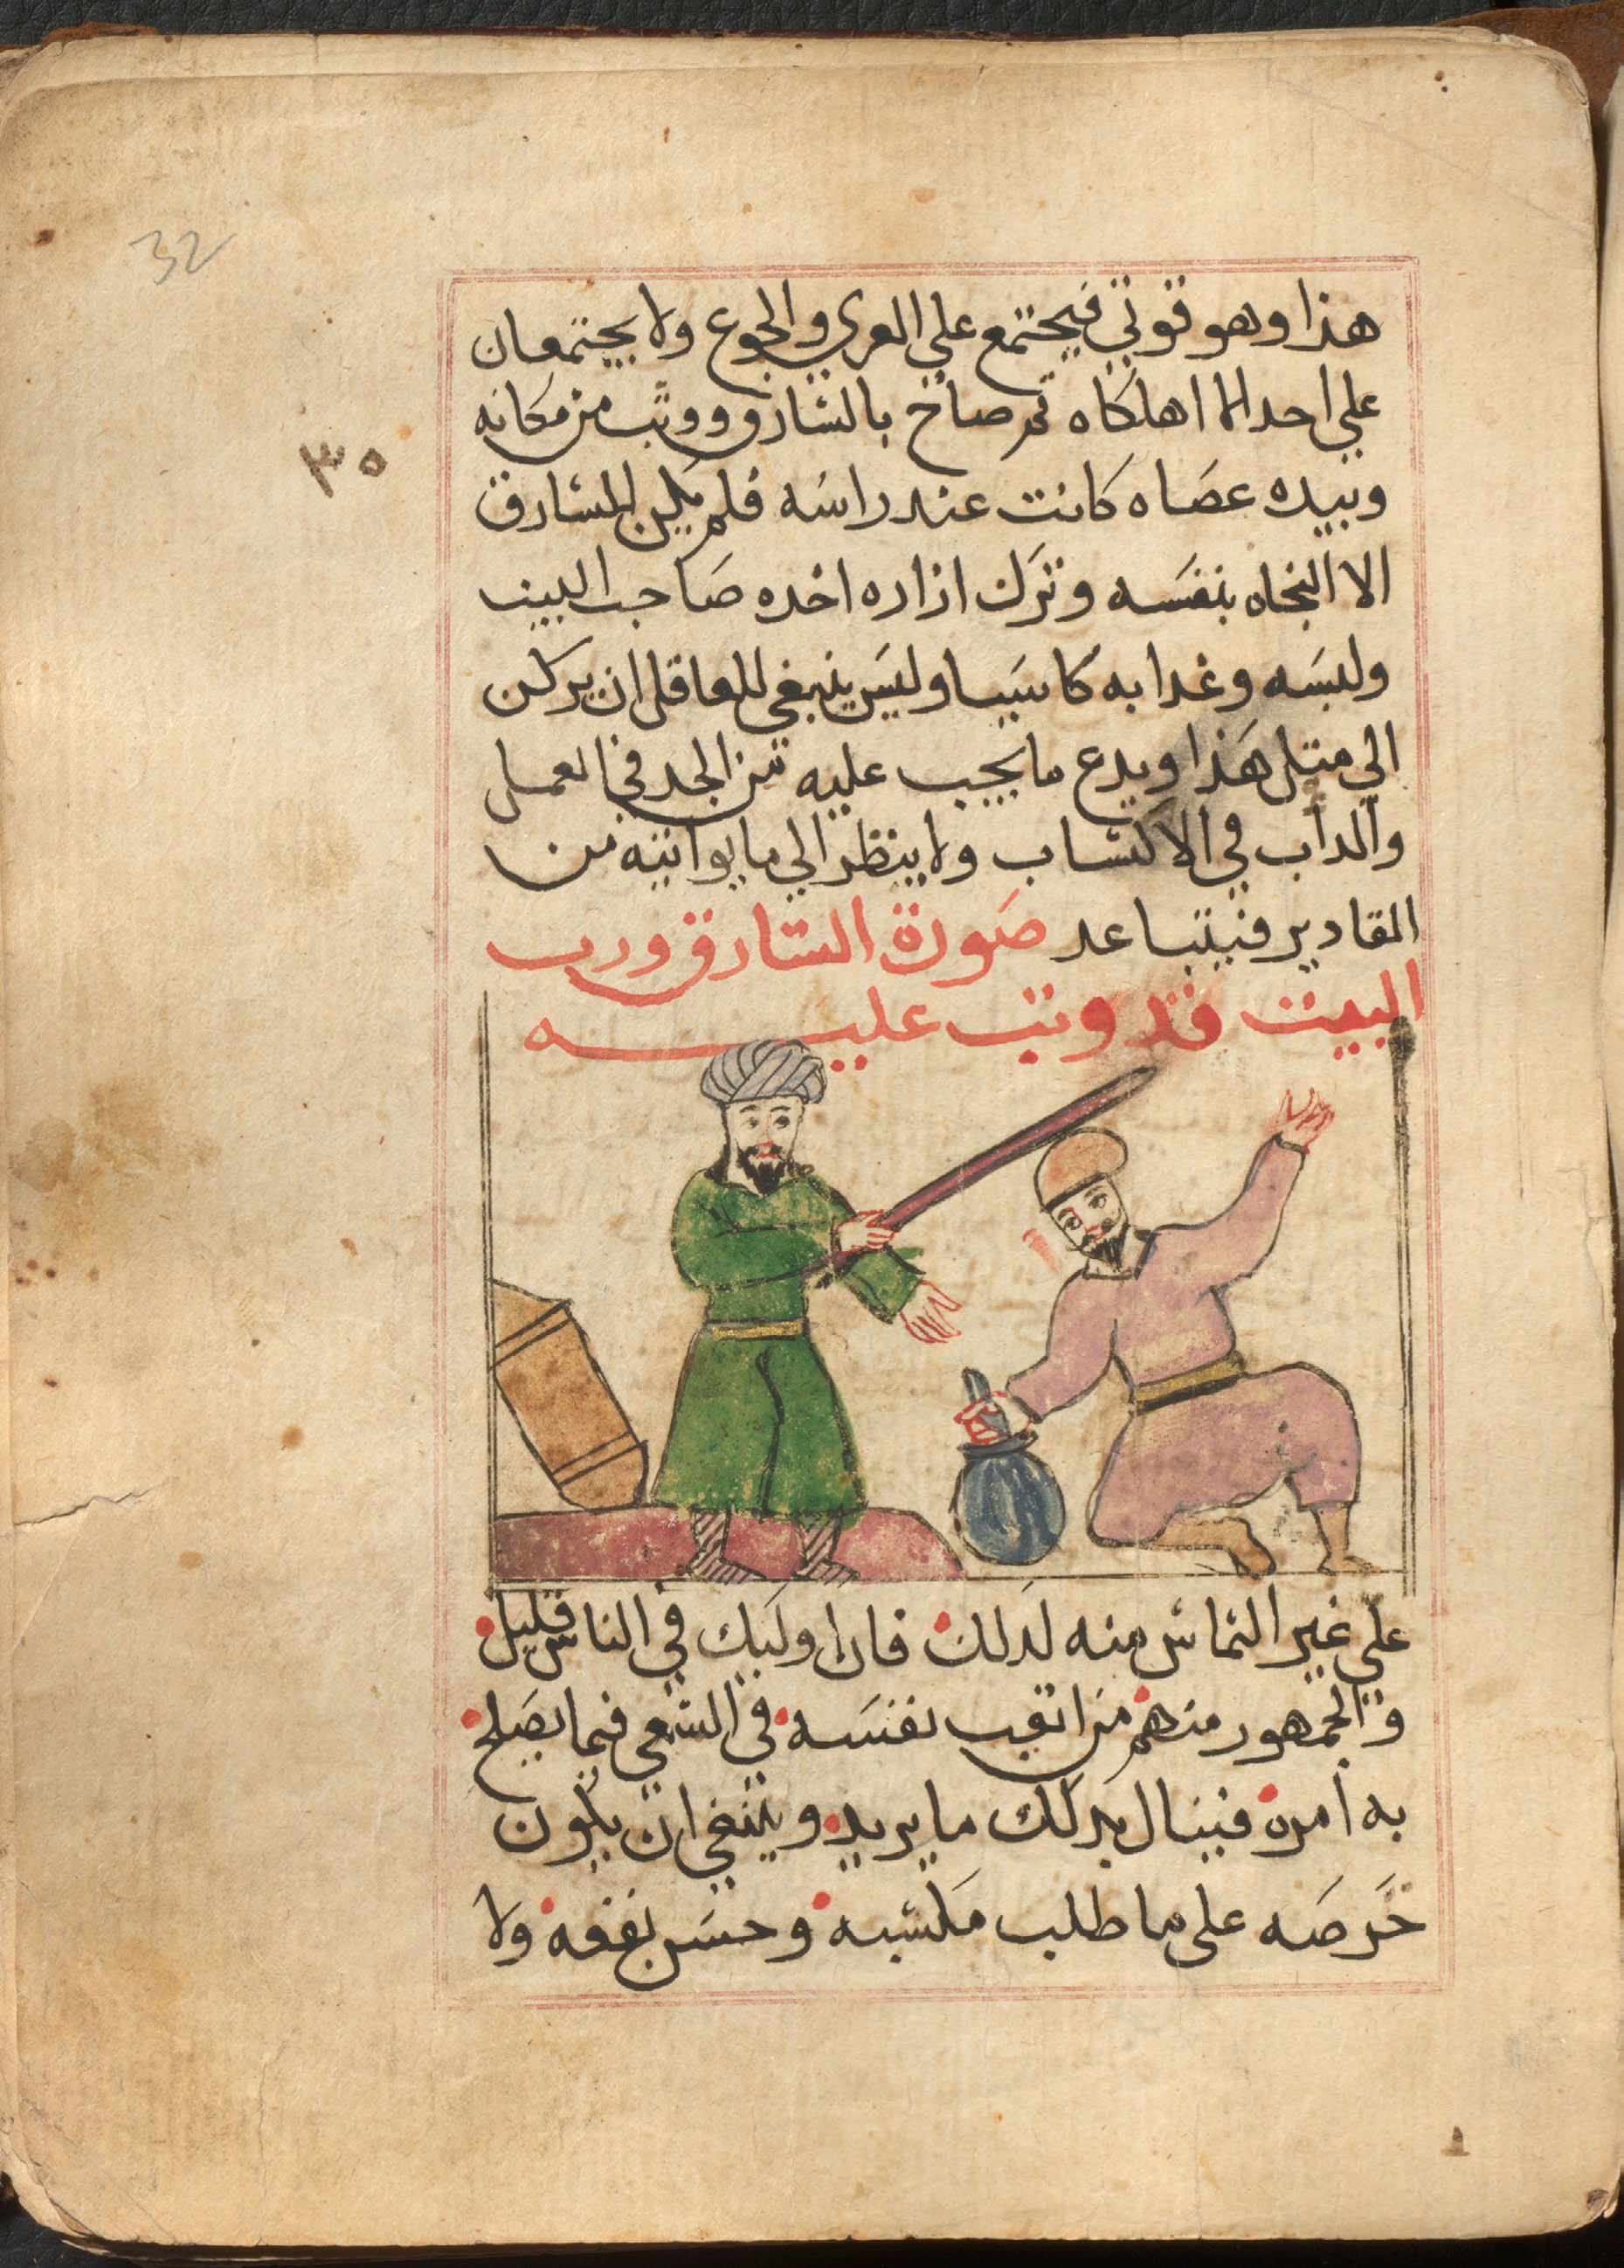 32
٣٥
هذا وهو قوتي فيجتمع علي العري والجوع ولا يجتمعان
علي احد الا اهلكاه ثم صاح بالسارق ووثب من مكانه
وبيده عصاه كانت عند راسه فلم يكن للسارق
الا النجاه بنفسه وترك ازاره اخده صاحب البيت
ولبسه وغدا به كاسيا وليس ينبغي للعاقل ان يركن
الي متل هذا ويدع ما يجب عليه من الجد في العمل
والداب في الاكتساب ولا ينظر الي ما يواتيه من
المقادير فيتباعد صورة السارق ورب
البيت قد وتب عليه
علي غير التماس منه لدلك فان اوليك في الناس قليل
والجمهور منهم من اتعب نفسه في السعي فيما يصلح
به امره فينال بدلك ما يريد وينبغي ان يكون
حرصه على ما طلب مكسبه وحسن نفعه ولا